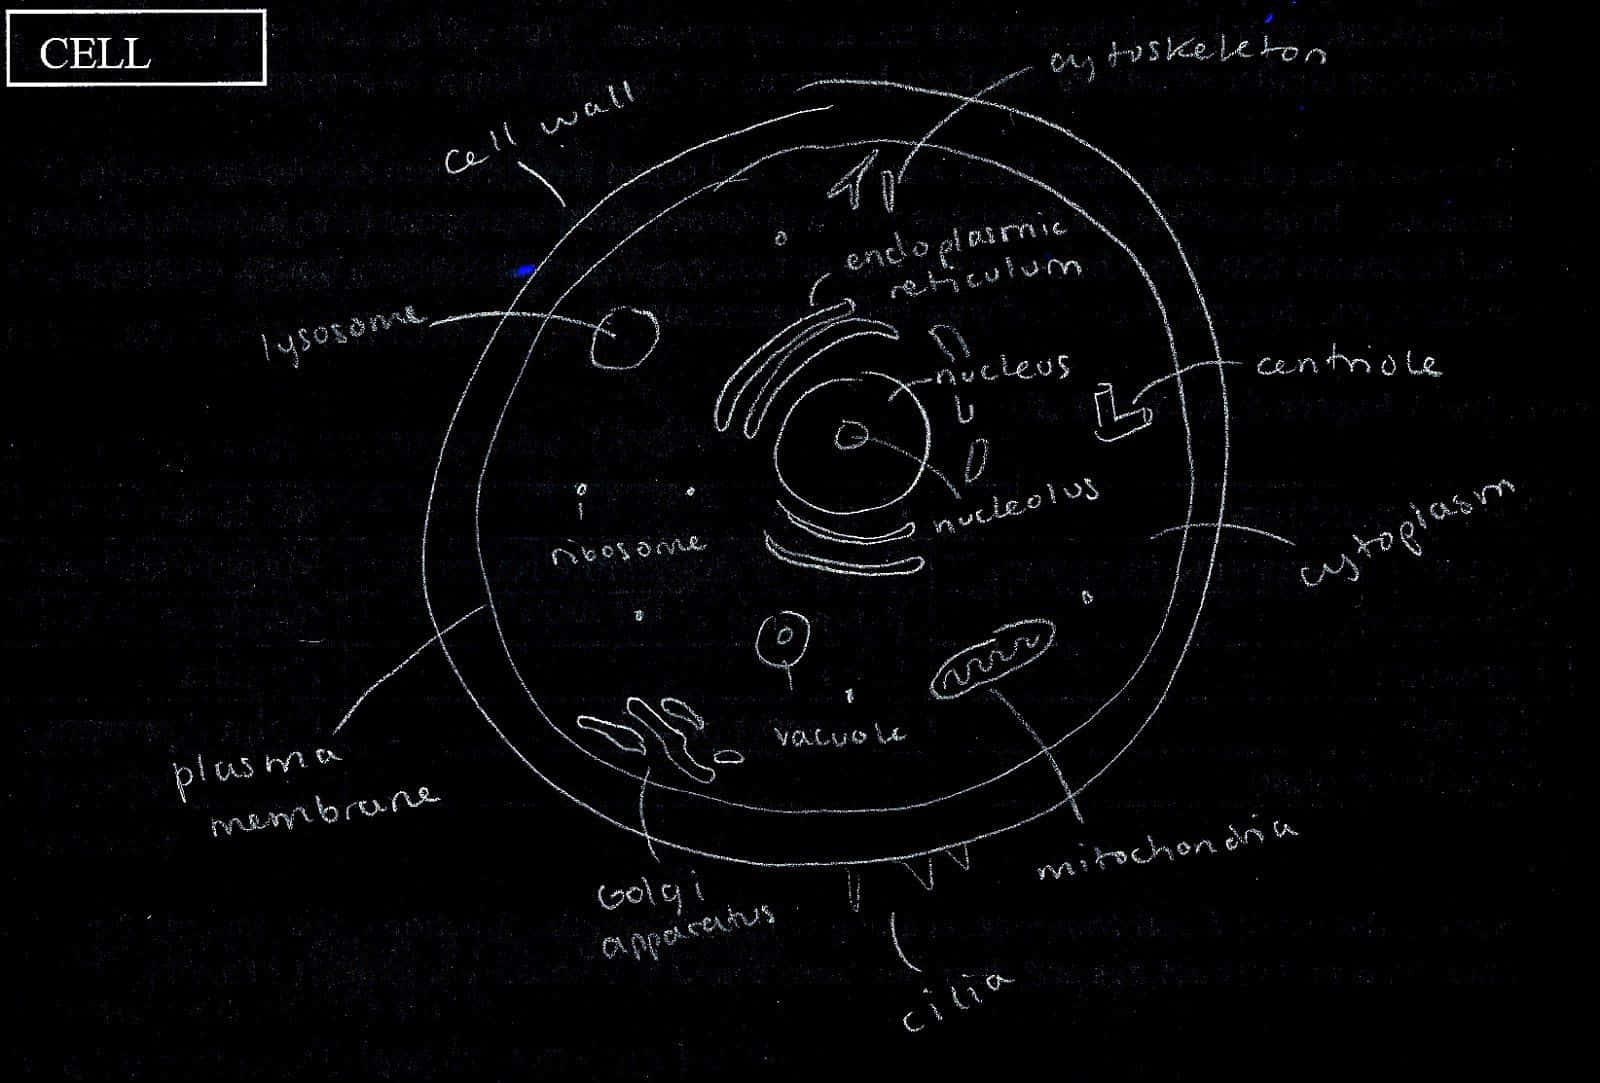 CELL
cytoskeleton
cell wall
endoplasmic
reticulum
lysosome
nucleus
centriole
nucleolus
cytoplasm
ribosome
vacuole
plasma
membrane
mitochondria
Golgi
apparatus
cilia